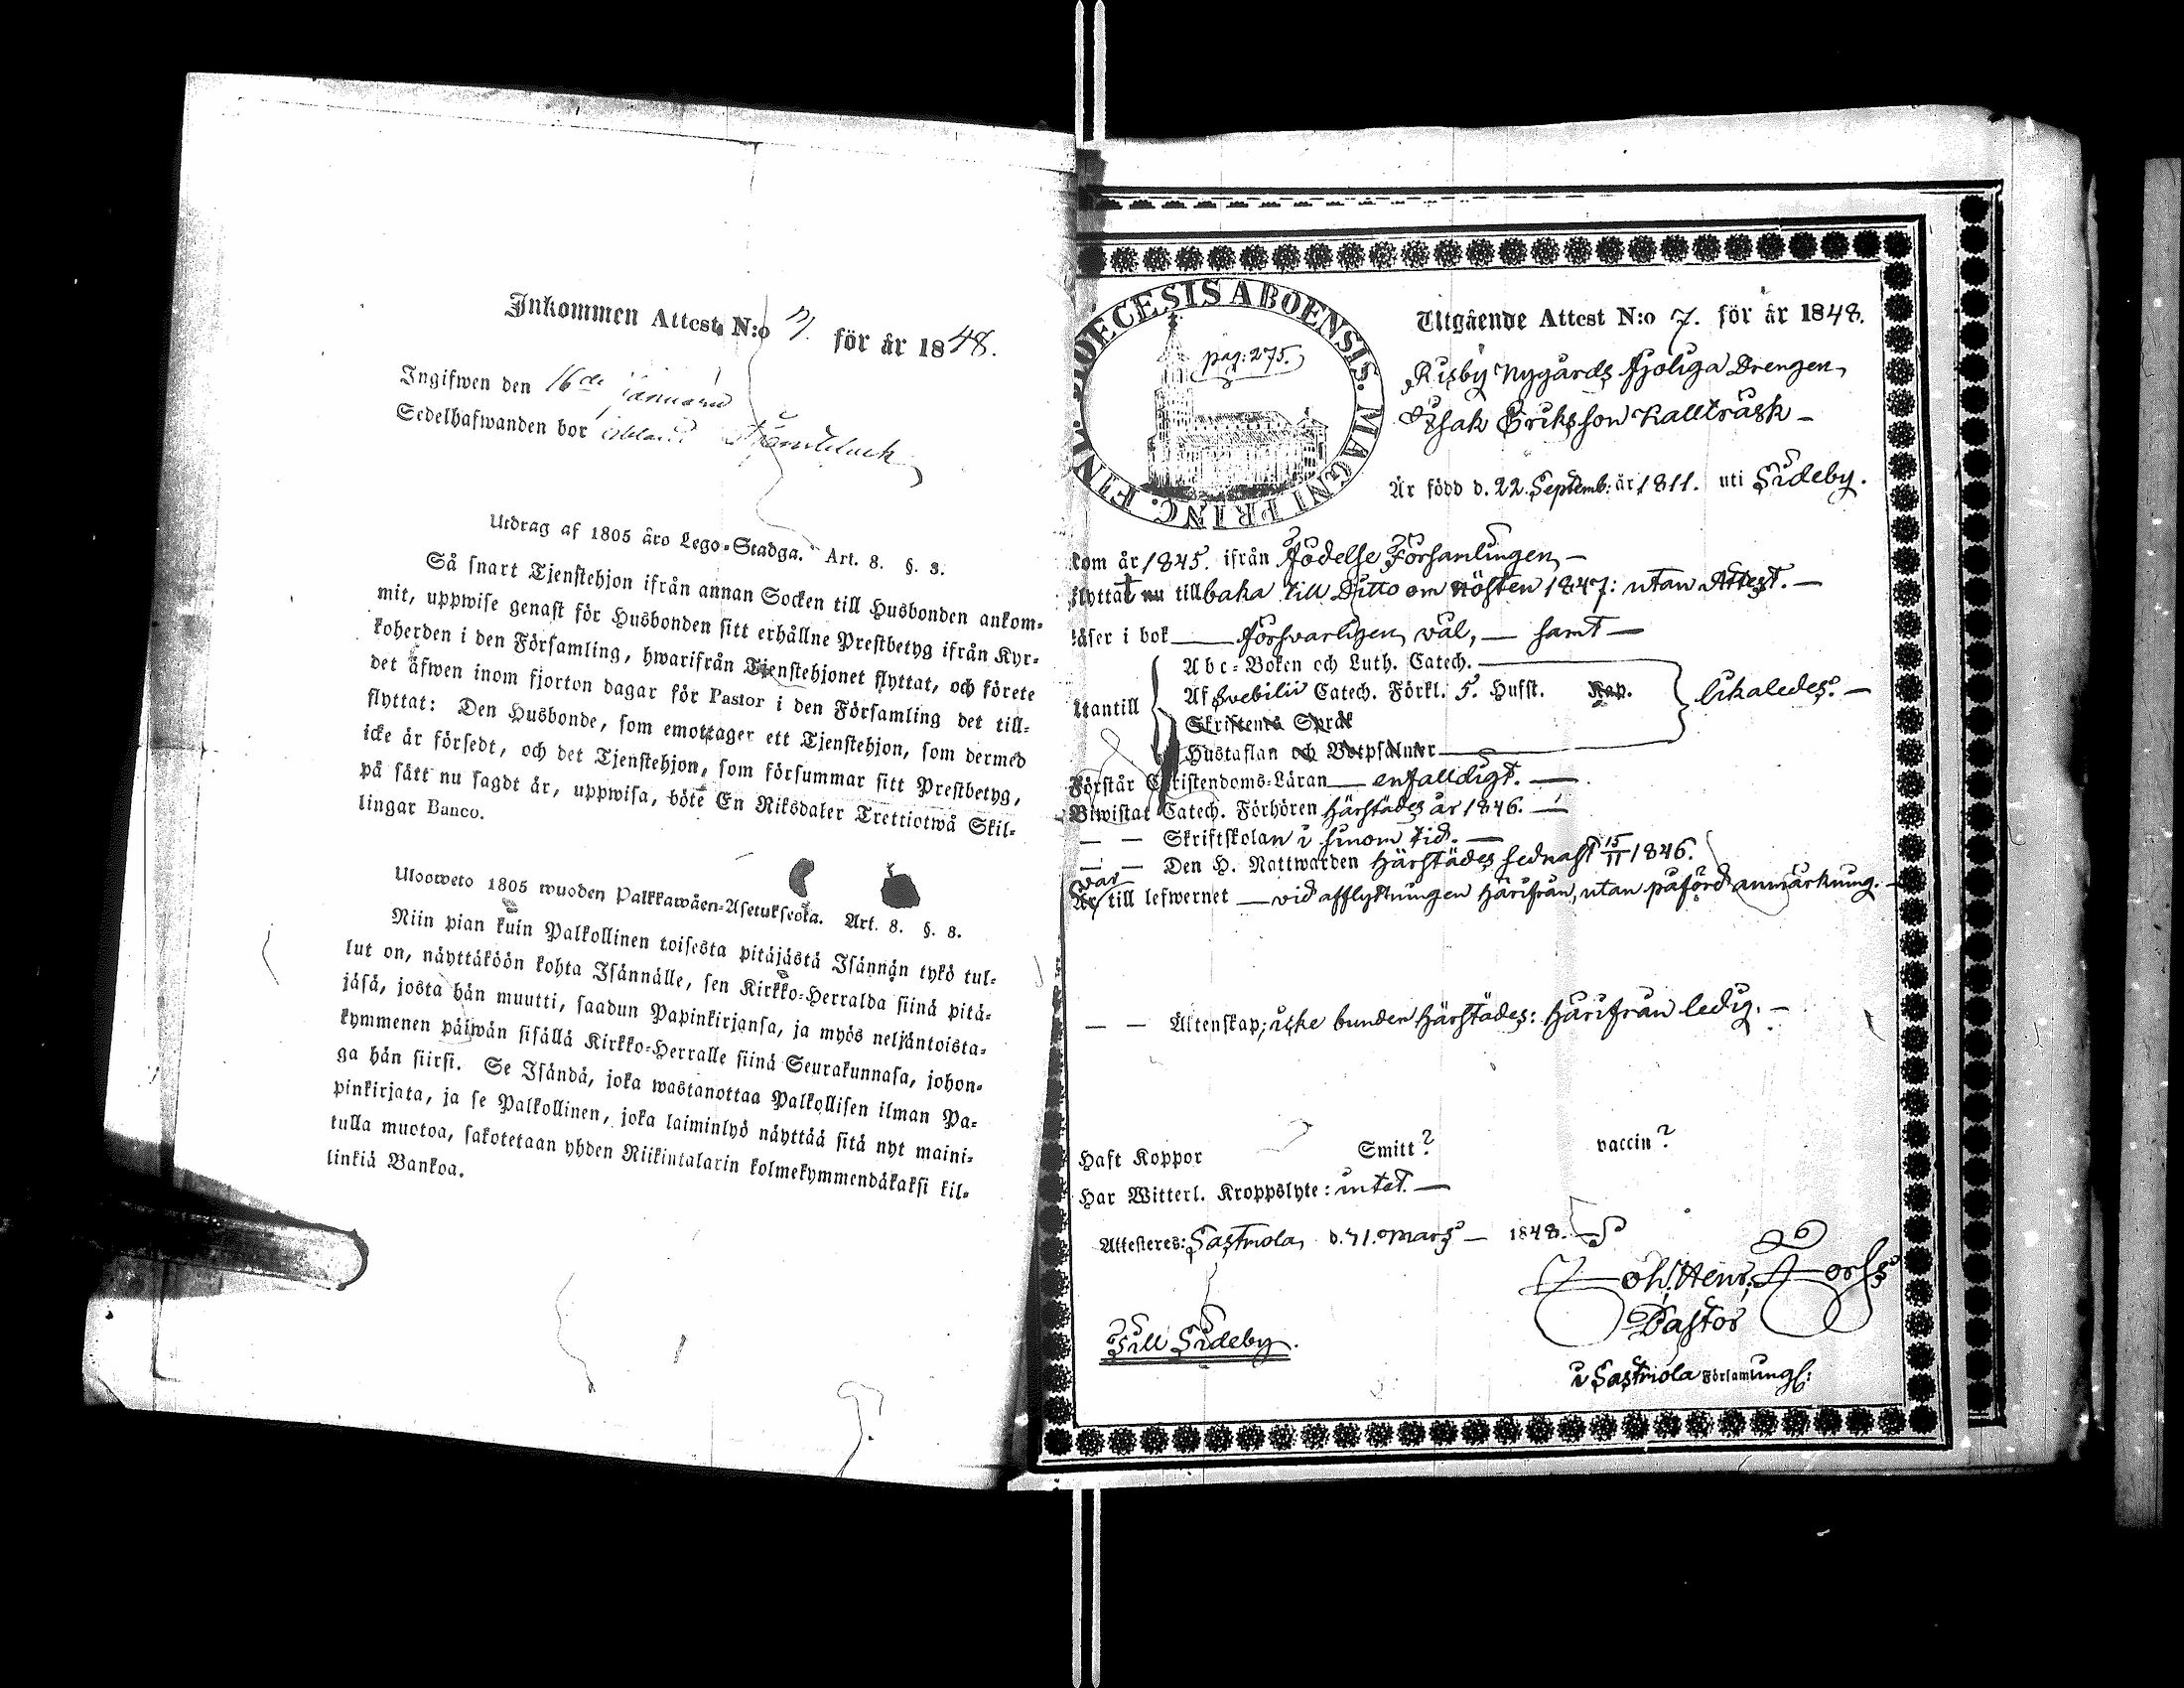 Inkommen Attest N:o 7. för år 1848.
Ingifwen den 16de
Sedelhafwanden bor
Utdrag af 1805 åro Lego-Stadga. Art. 8. §. 3.
Så snart Tjenstehjon ifrån annan Socken till Husbonden ankom-
mit, uppwise genast för Husbonden sitt erhållne Prestbetyg ifrån Kyr-
koherden i den Församling, hwarifrån Tjenstehjonet flyttat, och förete
det äfwen inom fjorton dagar för Pastor i den Församling det till-
flyttat: Den Husbonde, som emottager ett Tjenstehjon, som dermed
icke är försedt, och det Tjenstehjon, som försummar sitt Prestbetyg,
på sätt nu sagdt är, uppwisa, böte En Riksdaler Trettiotwå Skil-
lingar Banco.
Ulosweto 1805 wuoden Palkkawäen-Asetuksesta. Art. 8. §. 8.
Niin pian kuin Palkollinen toisesta pitäjästä Isännän tykö tul-
lut on, näyttäköön kohta Isännälle, sen Kirkko-Herralda siinä pitä-
jäsä, josta hän muutti, saadun Papinkirjansa, ja myös neljäntoista-
kymmenen päiwän sisällä Kirkko-Herralle siinä Seurakunnasa, johon-
ga hän siirsi. Se Isändä, joka wastanottaa Palkollisen ilman Pa-
pinkirjata, ja se Palkollinen, joka laiminlyö näyttää sitä nyt maini-
tulla muotoa, sakotetaan yhden Riikintalarin kolmekymmendäkaksi kil-
linkiä Bankoa.
DIOECESIS ABOENSIS. MAGNI PRINC. FINL.
pag: 275.
Utgående Attest N:o 7. för år 1848.
Risby Nygårds Drengen
Isak Eriksson Kallträsk
Är född d. 22. Septemb: år 1811. uti Sideby.
kom år 1845. ifrån Födelse Församlingen,
flyttat nu tillbaka till Ditto om hösten 1847: utan Attest.
läser i bok försvarligen, väl, samt
Abc-Boken och Luth. Catech.
utantill Af Svebilii Catech. Förkl. 5. Hufst. Kap. likaledes.
Skriftens Språk
Hustaflan och Botpsalmer
Förstår Christendoms-Läran enfaldigt.
Biwistat Catech. Förhören härstädes år 1846.
Skriftskolan i sinom tid.
Den H. Nattwarden härstädes sednast 15/11 1846.
var
Är till lefwernet vid afflyttningen härifrån, utan påförd anmärkning.
Äktenskap; icke bunden härstädes: härifrån ledig.
Haft Koppor Smitt? vaccin?
Har Witterl. Kroppslyte: intet.
Attesteres: Sastmola, d. 11. Mars 1848.
Joh. Henr. Forss
Pastor
Till Sideby.
i Sastmola Församling: